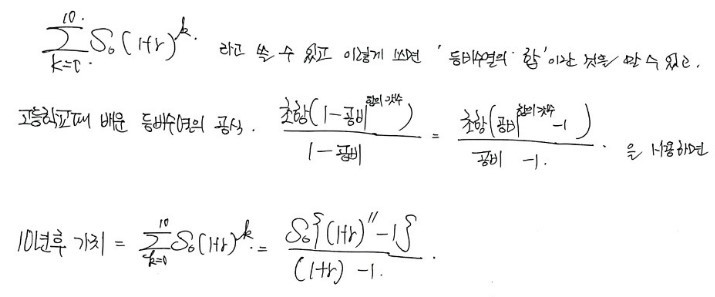 \sum_{k=0}^{10} S_0(1+r)^k 라고 쓸 수 있고 이렇게 쓰면 '등비수열의 합'이란 것을 알 수 있고.
고등학교때 배운 등비수열의 공식. \frac{초항(1-공비^{항의 갯수})}{1-공비} = \frac{초항(공비^{항의 갯수}-1)}{공비-1}. 을 사용하면
10년후 가치 = \sum_{k=0}^{10} S_0(1+r)^k = \frac{S_0\{(1+r)^{11}-1\}}{(1+r)-1}.